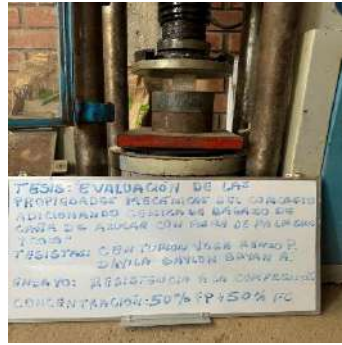 TESIS: EVALUACIÓN DE LAS
PROPIEDADES MECÁNICAS DEL CONCRETO
ADICIONANDO CENIZA DE BAGAZO DE
CAÑA DE AZUCAR CON FIBRAS DE
TESISTAS: CENTURION RENZO P.
DAVILA BRYAN A.
ENSAYO: RESISTENCIA A LA COMPRESIÓN
CONCENTRACION: 50% +50% FC